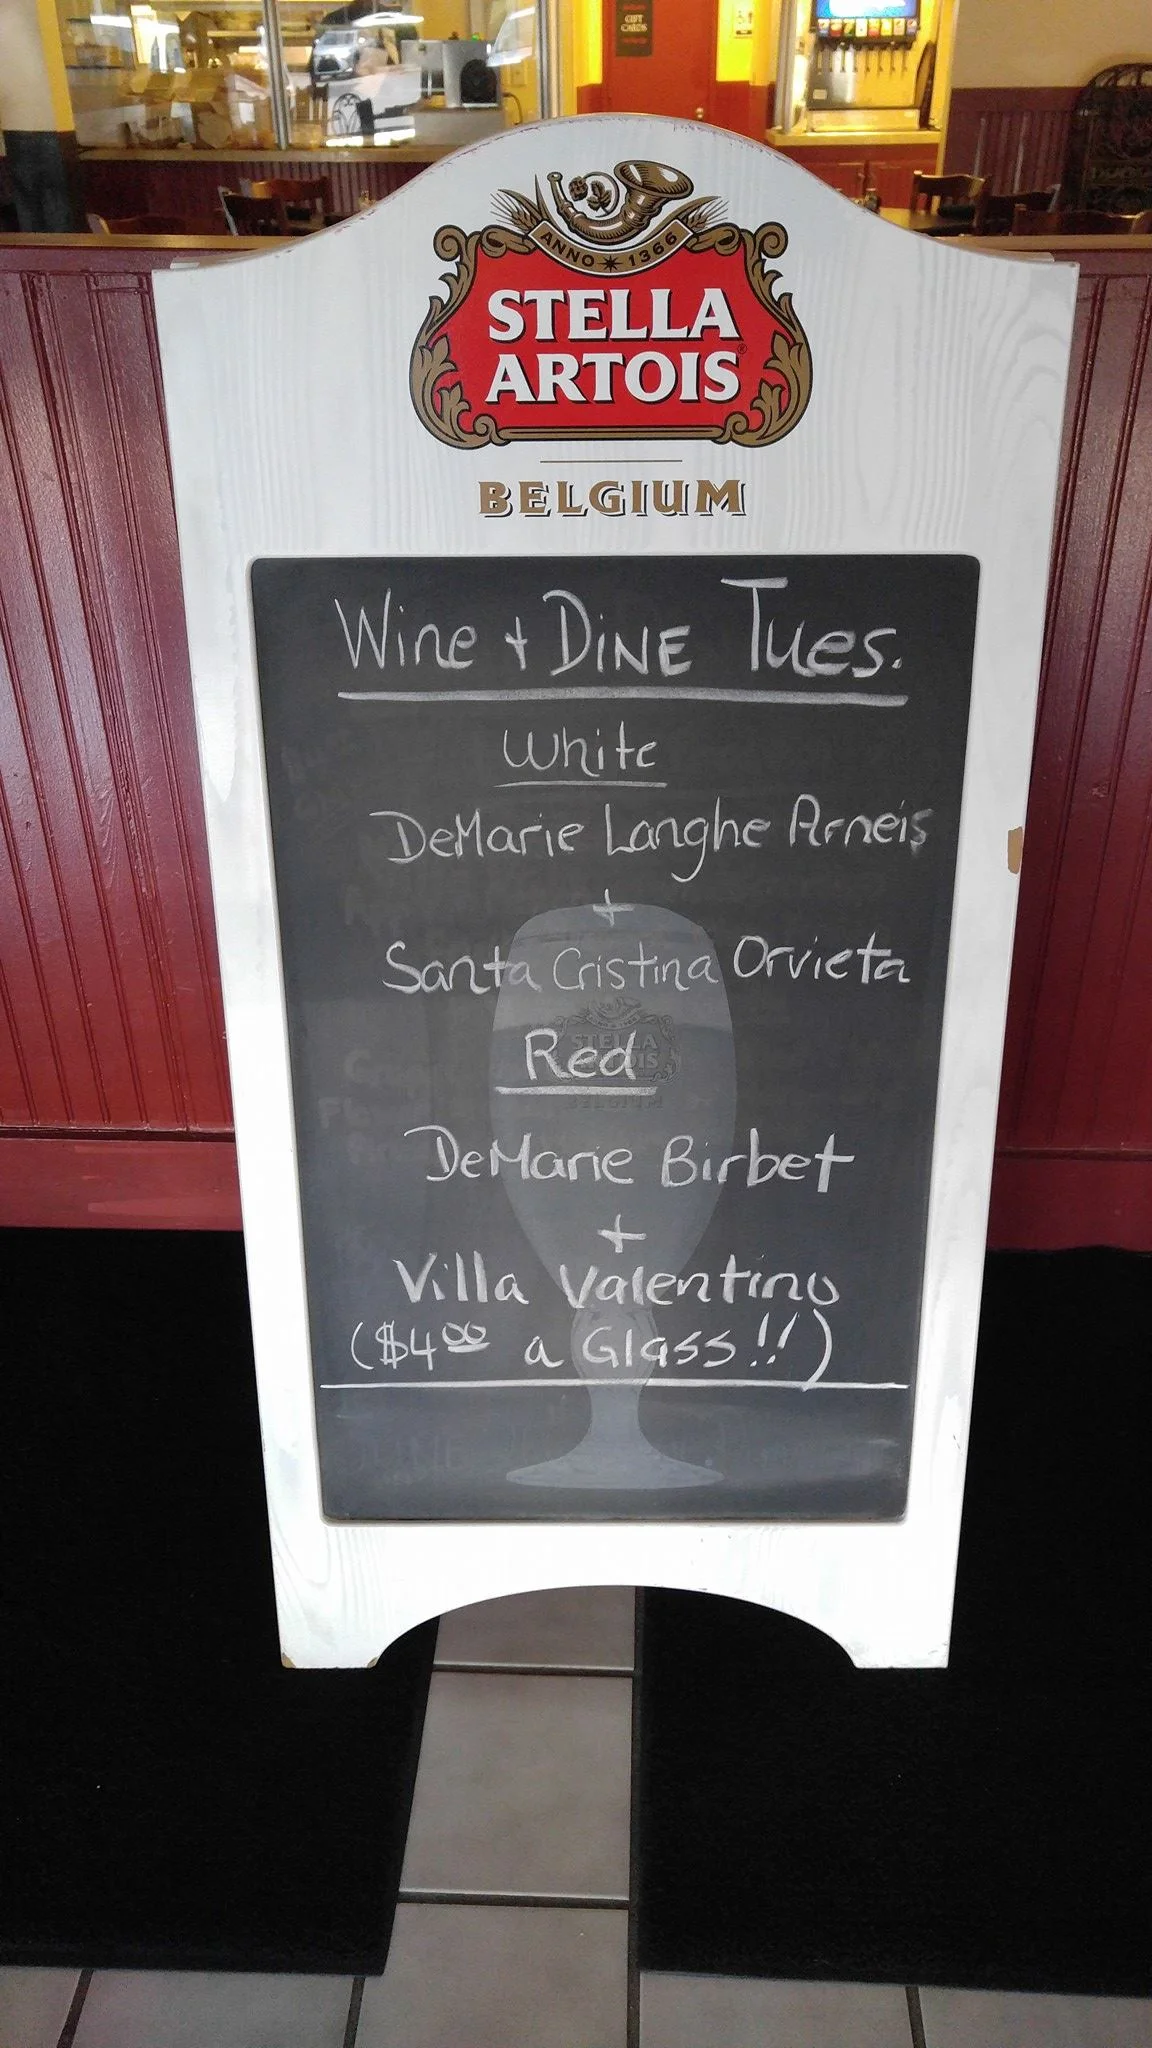 GIFT
CARDS
ANNO 1366
STELLA
ARTOIS
BELGIUM
Wine + DINE Tues.
White
DeMarie Langhe Arneis
+
Santa Cristina Orvieta
Red
STELLA
ARTOIS
BELGIUM
DeMarie Birbet
+
Villa Valentino
($4.00 a Glass!!)